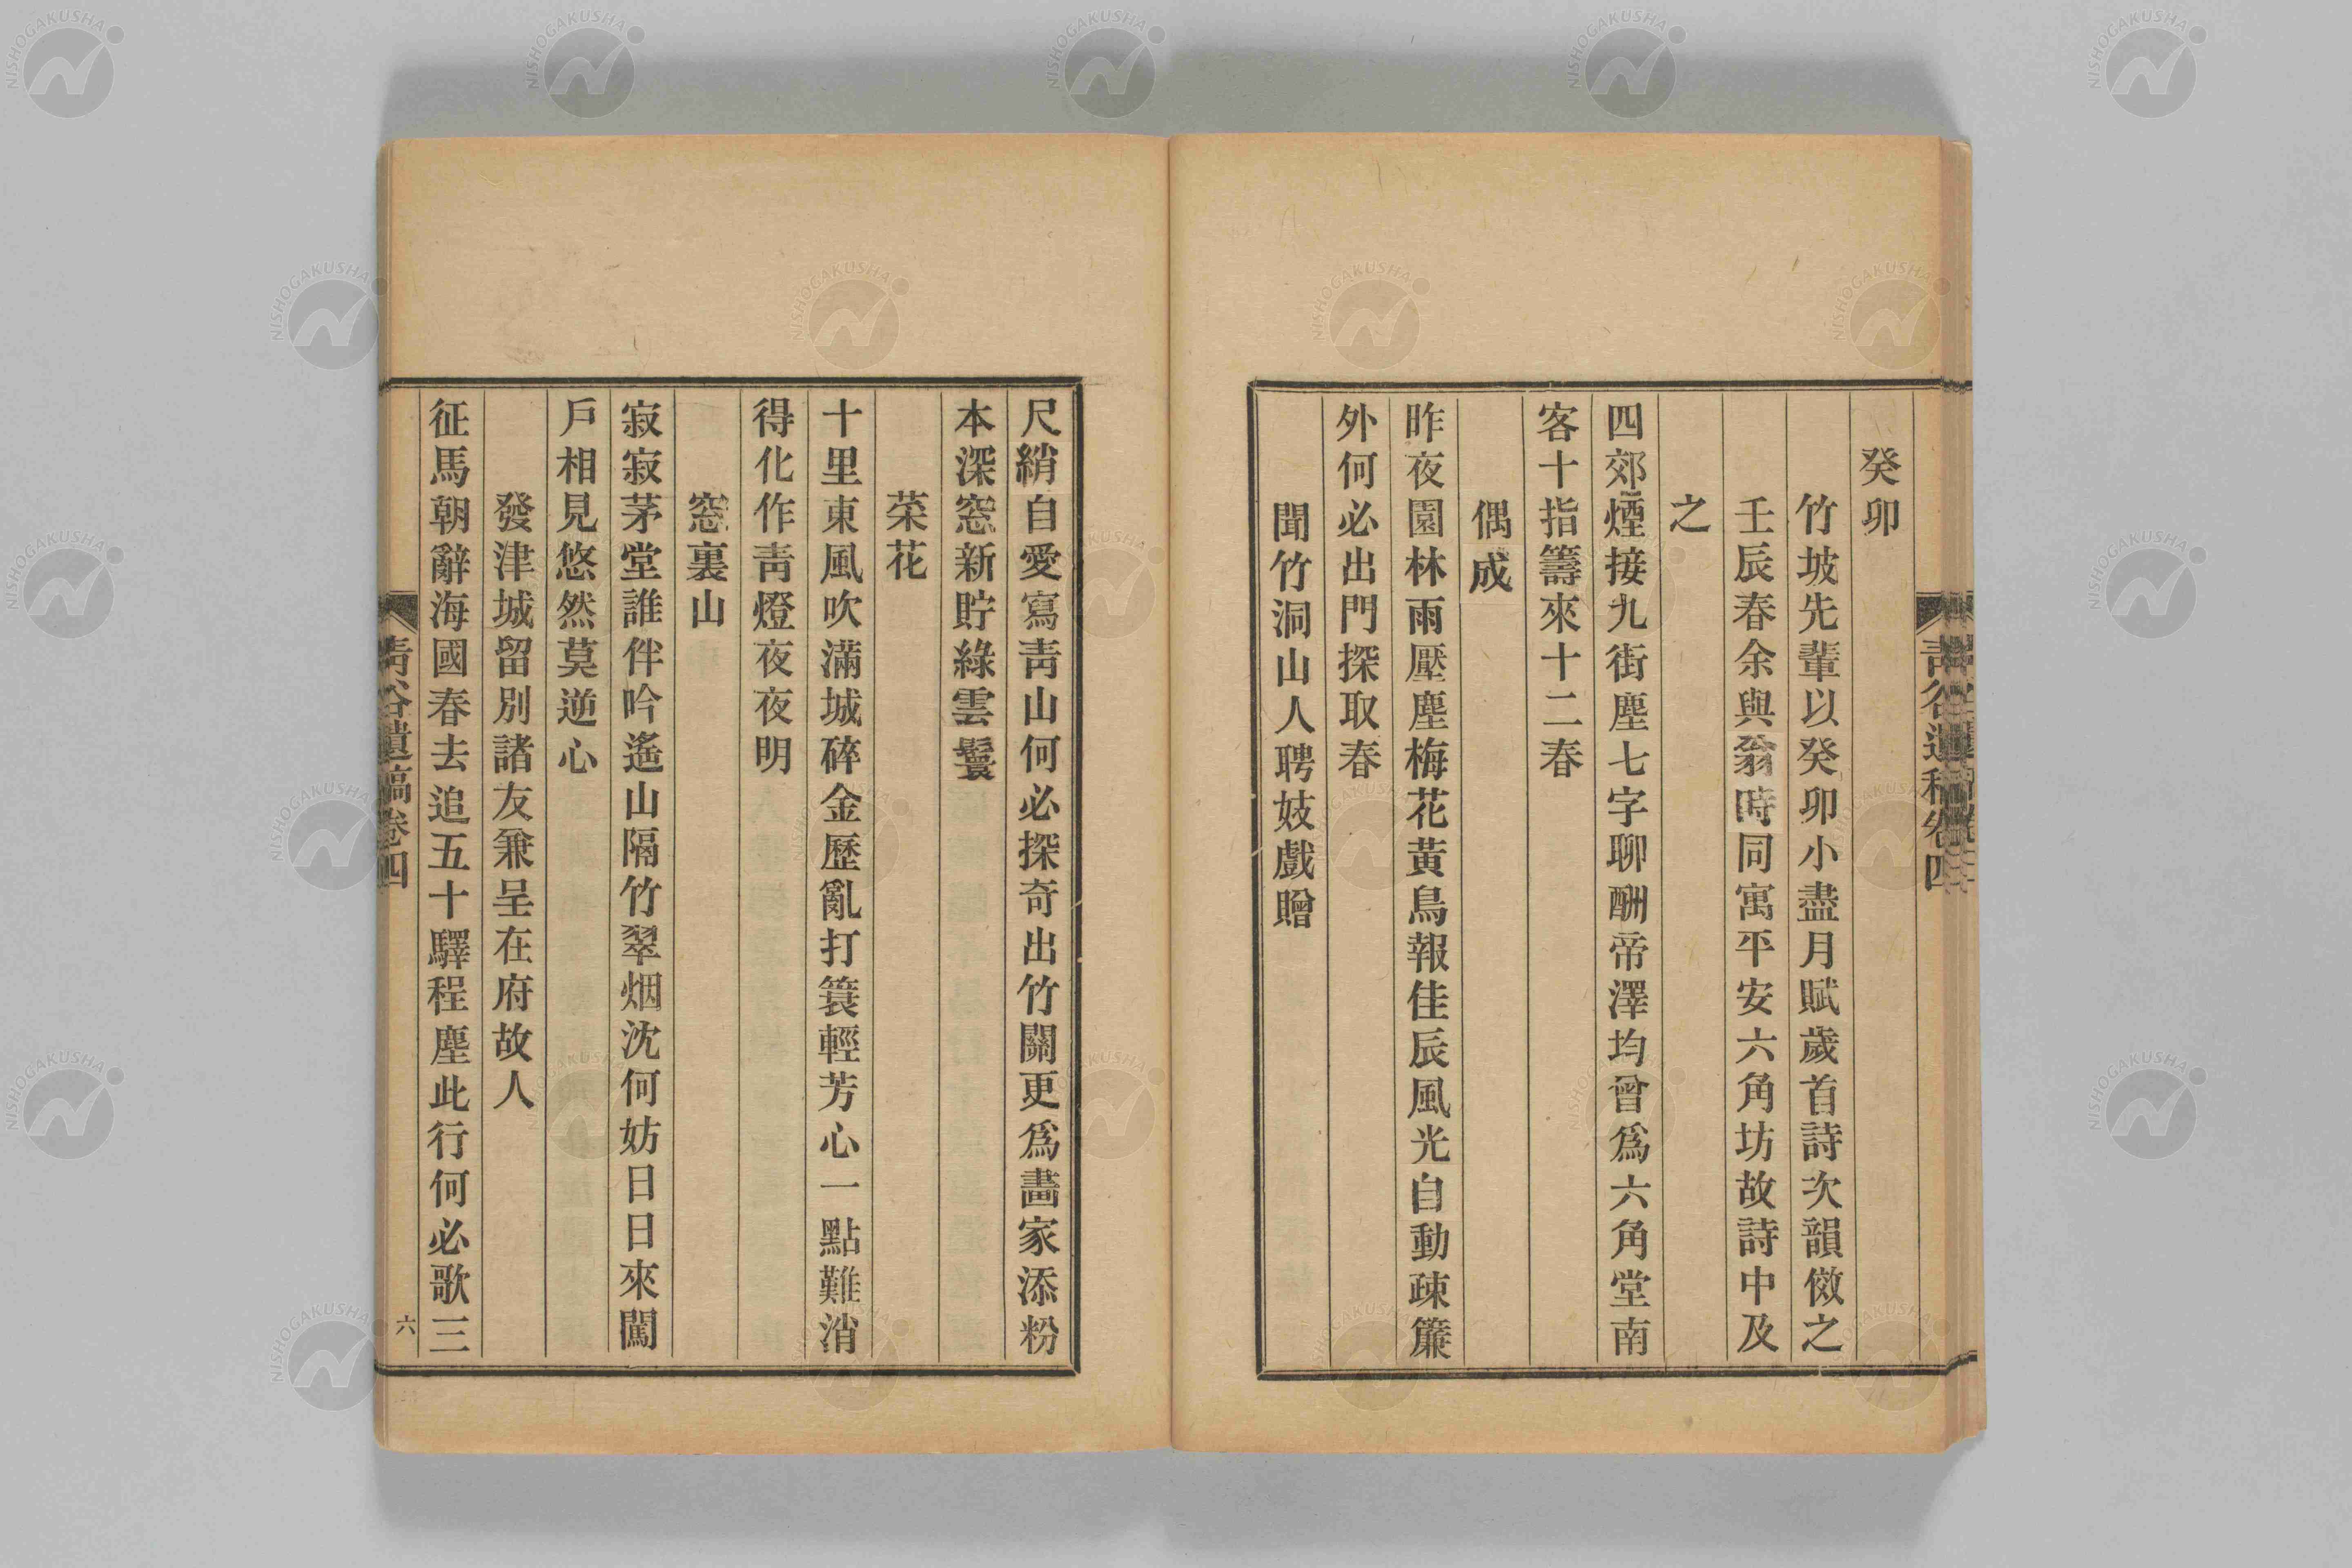 癸卯
竹坡先輩以癸卯小盡月賦歲首詩次韻傚之
壬辰春余與翁時同寓平安六角坊故詩中及
之
四郊煙接九街塵七字聊酬帝澤均曾爲六角堂南
客十指籌來十二春
偶成
昨夜園林雨壓塵梅花黃鳥報佳辰風光自動疎簾
外何必出門探取春
聞竹洞山人聘妓戲贈
尺綃自愛寫靑山何必探奇出竹關更爲畵家添粉
本深窓新貯綠雲鬟
菜花
十里東風吹滿城碎金歷亂打簑輕芳心一點難消
得化作靑燈夜夜明
窓裏山
寂寂茅堂誰伴吟遙山隔竹翠烟沈何妨日日來闖
戶相見悠然莫逆心
發津城留別諸友兼呈在府故人
征馬朝辭海國春去追五十驛程塵此行何必歌三
靑谷遺稿卷四
六
NISHOGAKUSHA